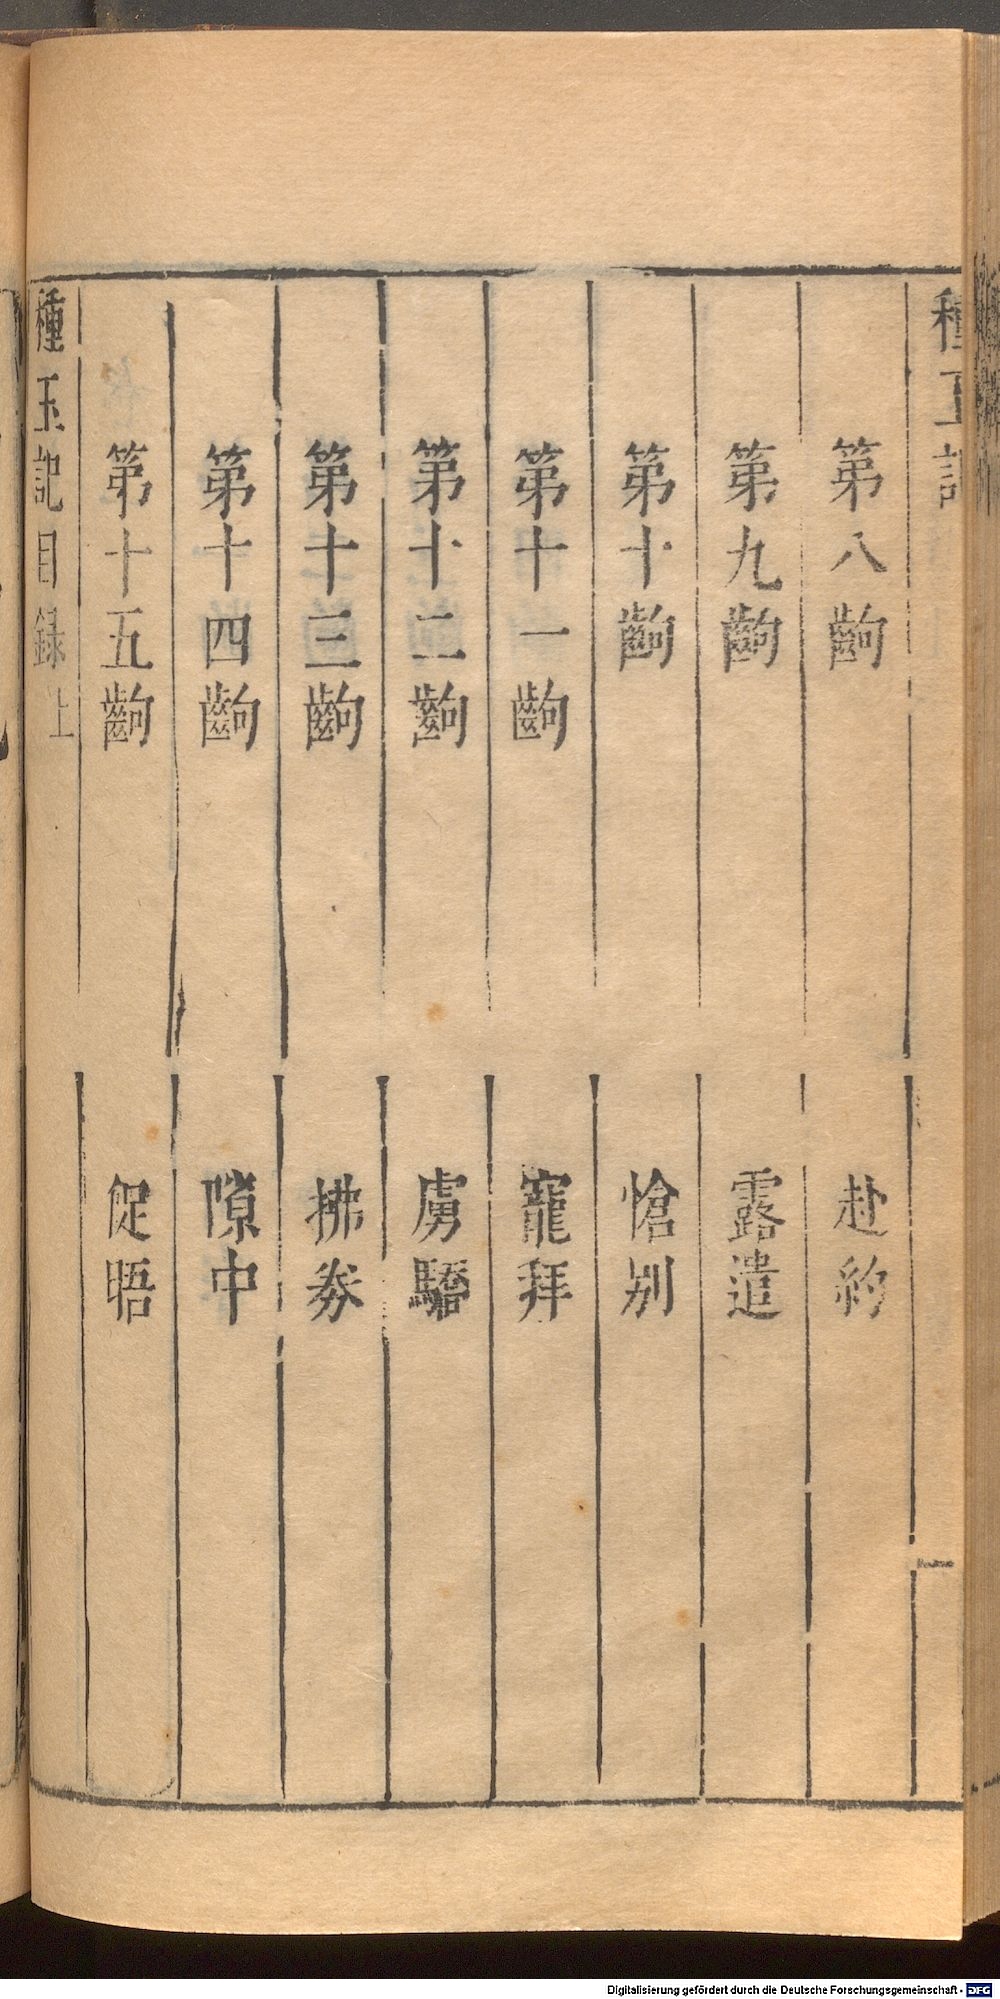 種玉記 一
第八齣 赴約
第九齣 露遣
第十齣 愴別
第十一齣 寵拜
第十二齣 虜驕
第十三齣 拂券
第十四齣 隙中
第十五齣 促晤
種玉記目錄上
Digitalisierung gefördert durch die Deutsche Forschungsgemeinschaft - DFG